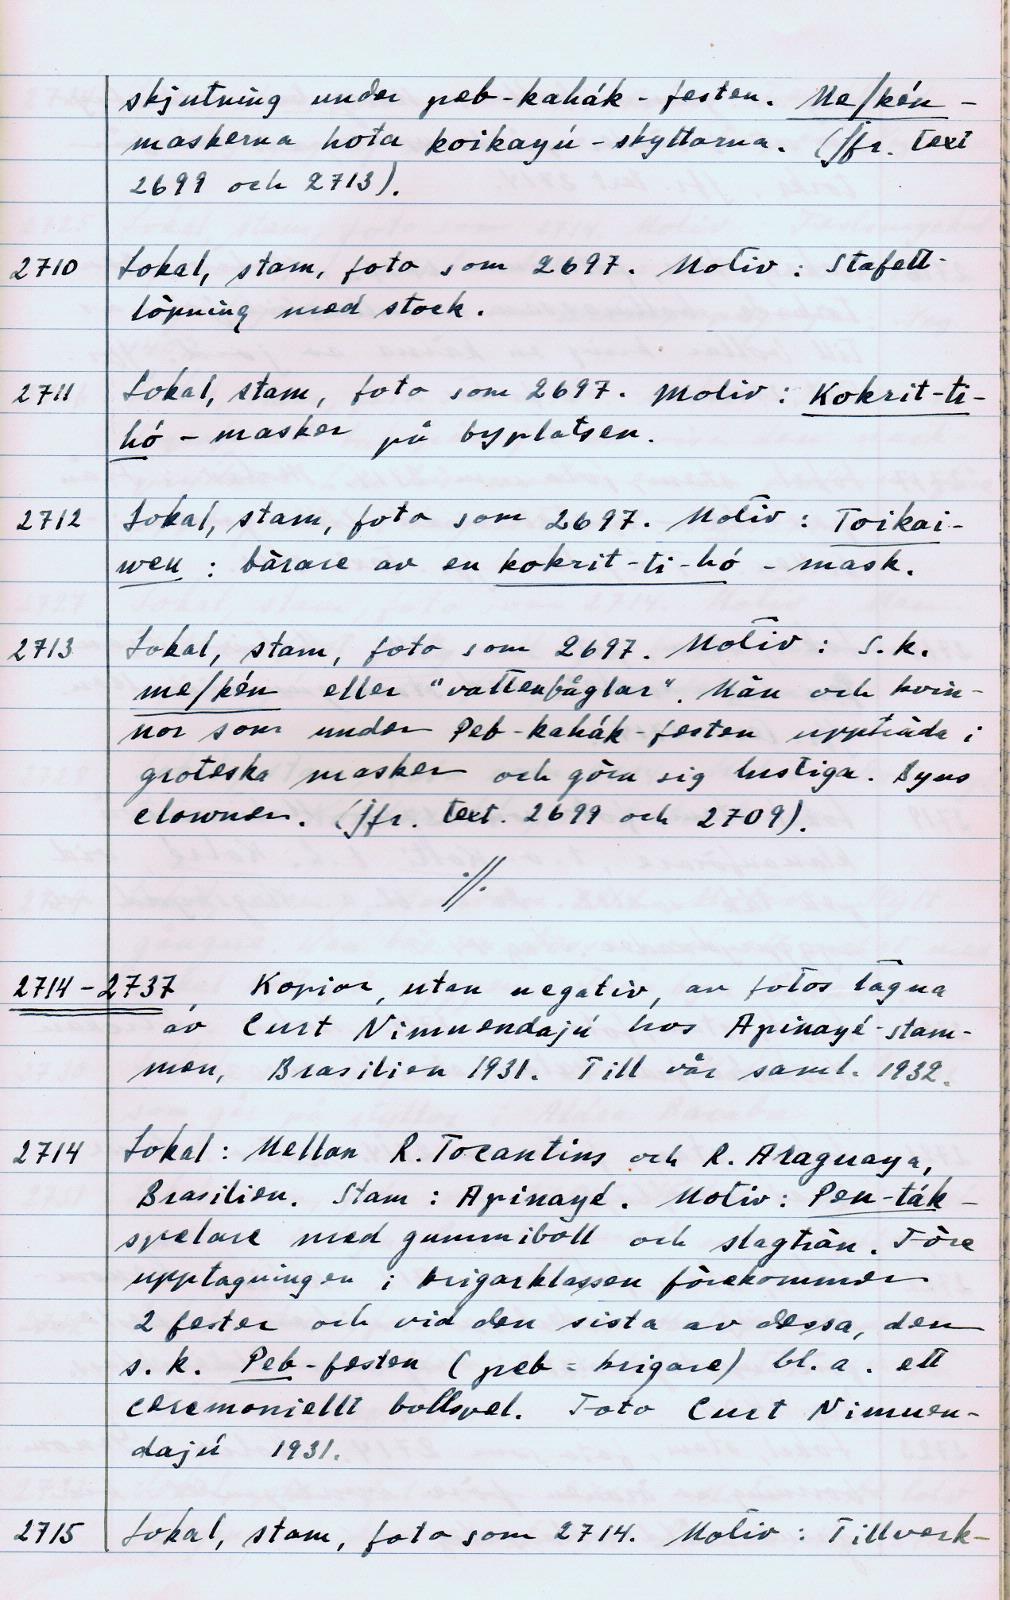 skjutning under peb-kahák-festen. Me/kén-
maskerna hota koikayú-skyttarna. (Jfr. text
2699 och 2713).
2710 Lokal, stam, foto som 2697. Motiv: Stafett-
löpning med stock.
2711 Lokal, stam, foto som 2697. Motiv: Kokrit-ti-
hó-masker på byplatsen.
2712 Lokal, stam, foto som 2697. Motiv: Toikai-
wen: bärare av en kokrit-ti-hó-mask.
2713 Lokal, stam, foto som 2697. Motiv: s.k.
me/kén eller "vattenfåglar". Män och kvin-
nor som under Peb-kahák-festen uppträda i
groteska masker och göra sig lustiga. Byns
clowner. (Jfr. text. 2699 och 2709).
·//.
2714-2737, Kopior, utan negativ, av fotos tagna
av Curt Nimuendajú hos Apinayé-stam-
men, Brasilien 1931. Till vår saml. 1932.
2714 Lokal: Mellan R. Tocantins och R. Araguaya,
Brasilien. Stam: Apinayé. Motiv: Pen-ták-
spelare med gummiboll och slagträn. Före
upptagningen i krigarklassen förekommer
2 fester och vid den sista av dessa, den
s.k. Peb-festen (peb = krigare) bl.a. ett
ceremoniellt bollspel. Foto Curt Nimuen-
dajú 1931.
2715 Lokal, stam, foto som 2714. Motiv: Tillverk-